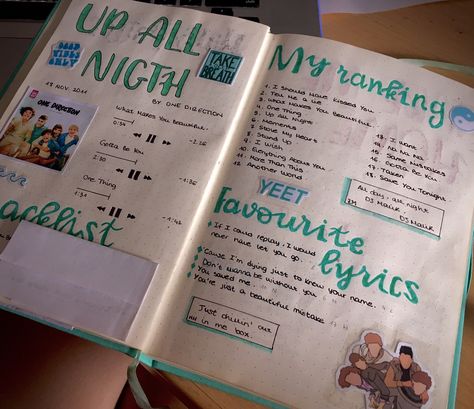 UP ALL
NIGTH
BY ONE DIRECTION
GOOD VIBES ONLY
TAKE A BREATH
18 NOV. 2011
ONE DIRECTION
What Makes You Beautiful
Gotta Be You
2:30
One Thing
3:10
My ranking
1. I Should Have Kissed You
2. Tell Me a Lie
3. What Makes You Beautiful
4. One Thing
5. Up All Night
6. Moments
7. Stole My Heart
8. Stand Up
9. I Wish
10. Everything About You
11. More Than This
12. Another World
13. I Want
14. Na Na Na
15. Same Mistakes
16. Gotta Be You
17. Taken
18. Save You Tonight
All day, all night
ZM DJ MALIK, DJ MALIK
YEET
Favourite
lyrics
If I could replay, I would
never have let you go
Cause I'm dying just to know your name.
Don't wanna be without you
You saved me
You're just a beautiful mistake
Just chillin' out
in me box.